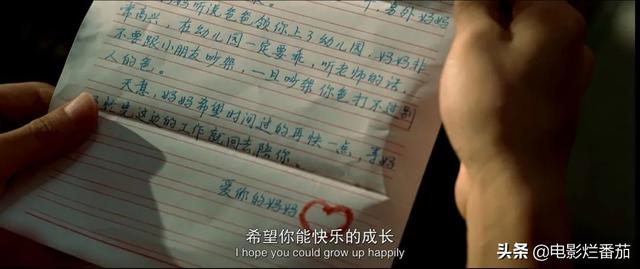 妈妈
妈妈听说爸爸领你上了幼儿园,妈妈非
常高兴,在幼儿园一定要乖,听老师的话,
不要跟小朋友吵架,一旦吵架你爸打不过别
人的爸。
天真,妈妈希望时间过的再快一点,等妈
忙完这边的工作就回去陪你。
爱你的妈妈
希望你能快乐的成长
I hope you could grow up happily
头条 @电影烂番茄